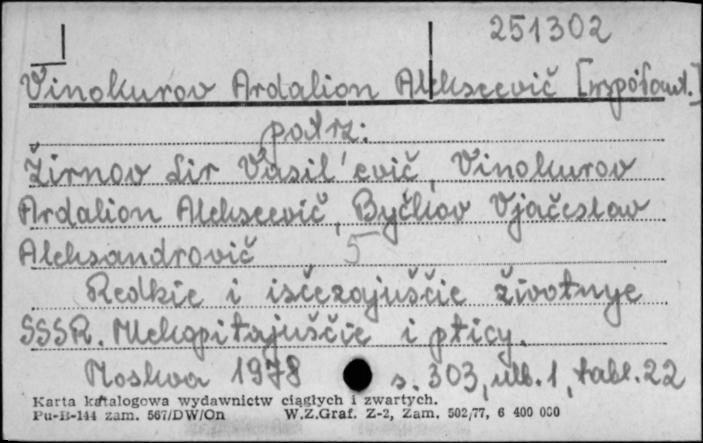 251302
Vinokurov Ardalion Alekseevič [współaut.]
patrz:
Žirnov Lir Vasil'evič, Vinokurov
Ardalion Alekseevič, Byčkov Vjačeslav
Aleksandrovič 5
Redkie i isčezajuščie životnye
SSSR. Mlekopitajuščie i pticy.
Moskva 1978 s. 303, ulb. 1, tabl. 22
Karta katalogowa wydawnictw ciągłych i zwartych.
Pu-B-144 zam. 567/DW/On W.Z.Graf. Z-2, Zam. 502/77, 6 400 000